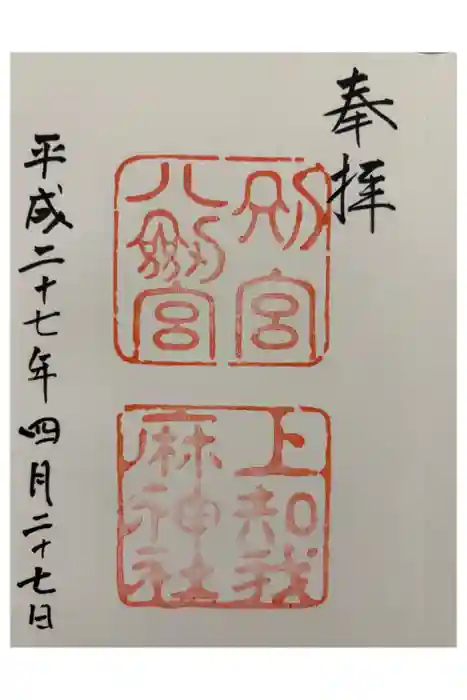 奉拝
別宮
八剱宮
上知我
麻神社
平成二十七年四月二十七日